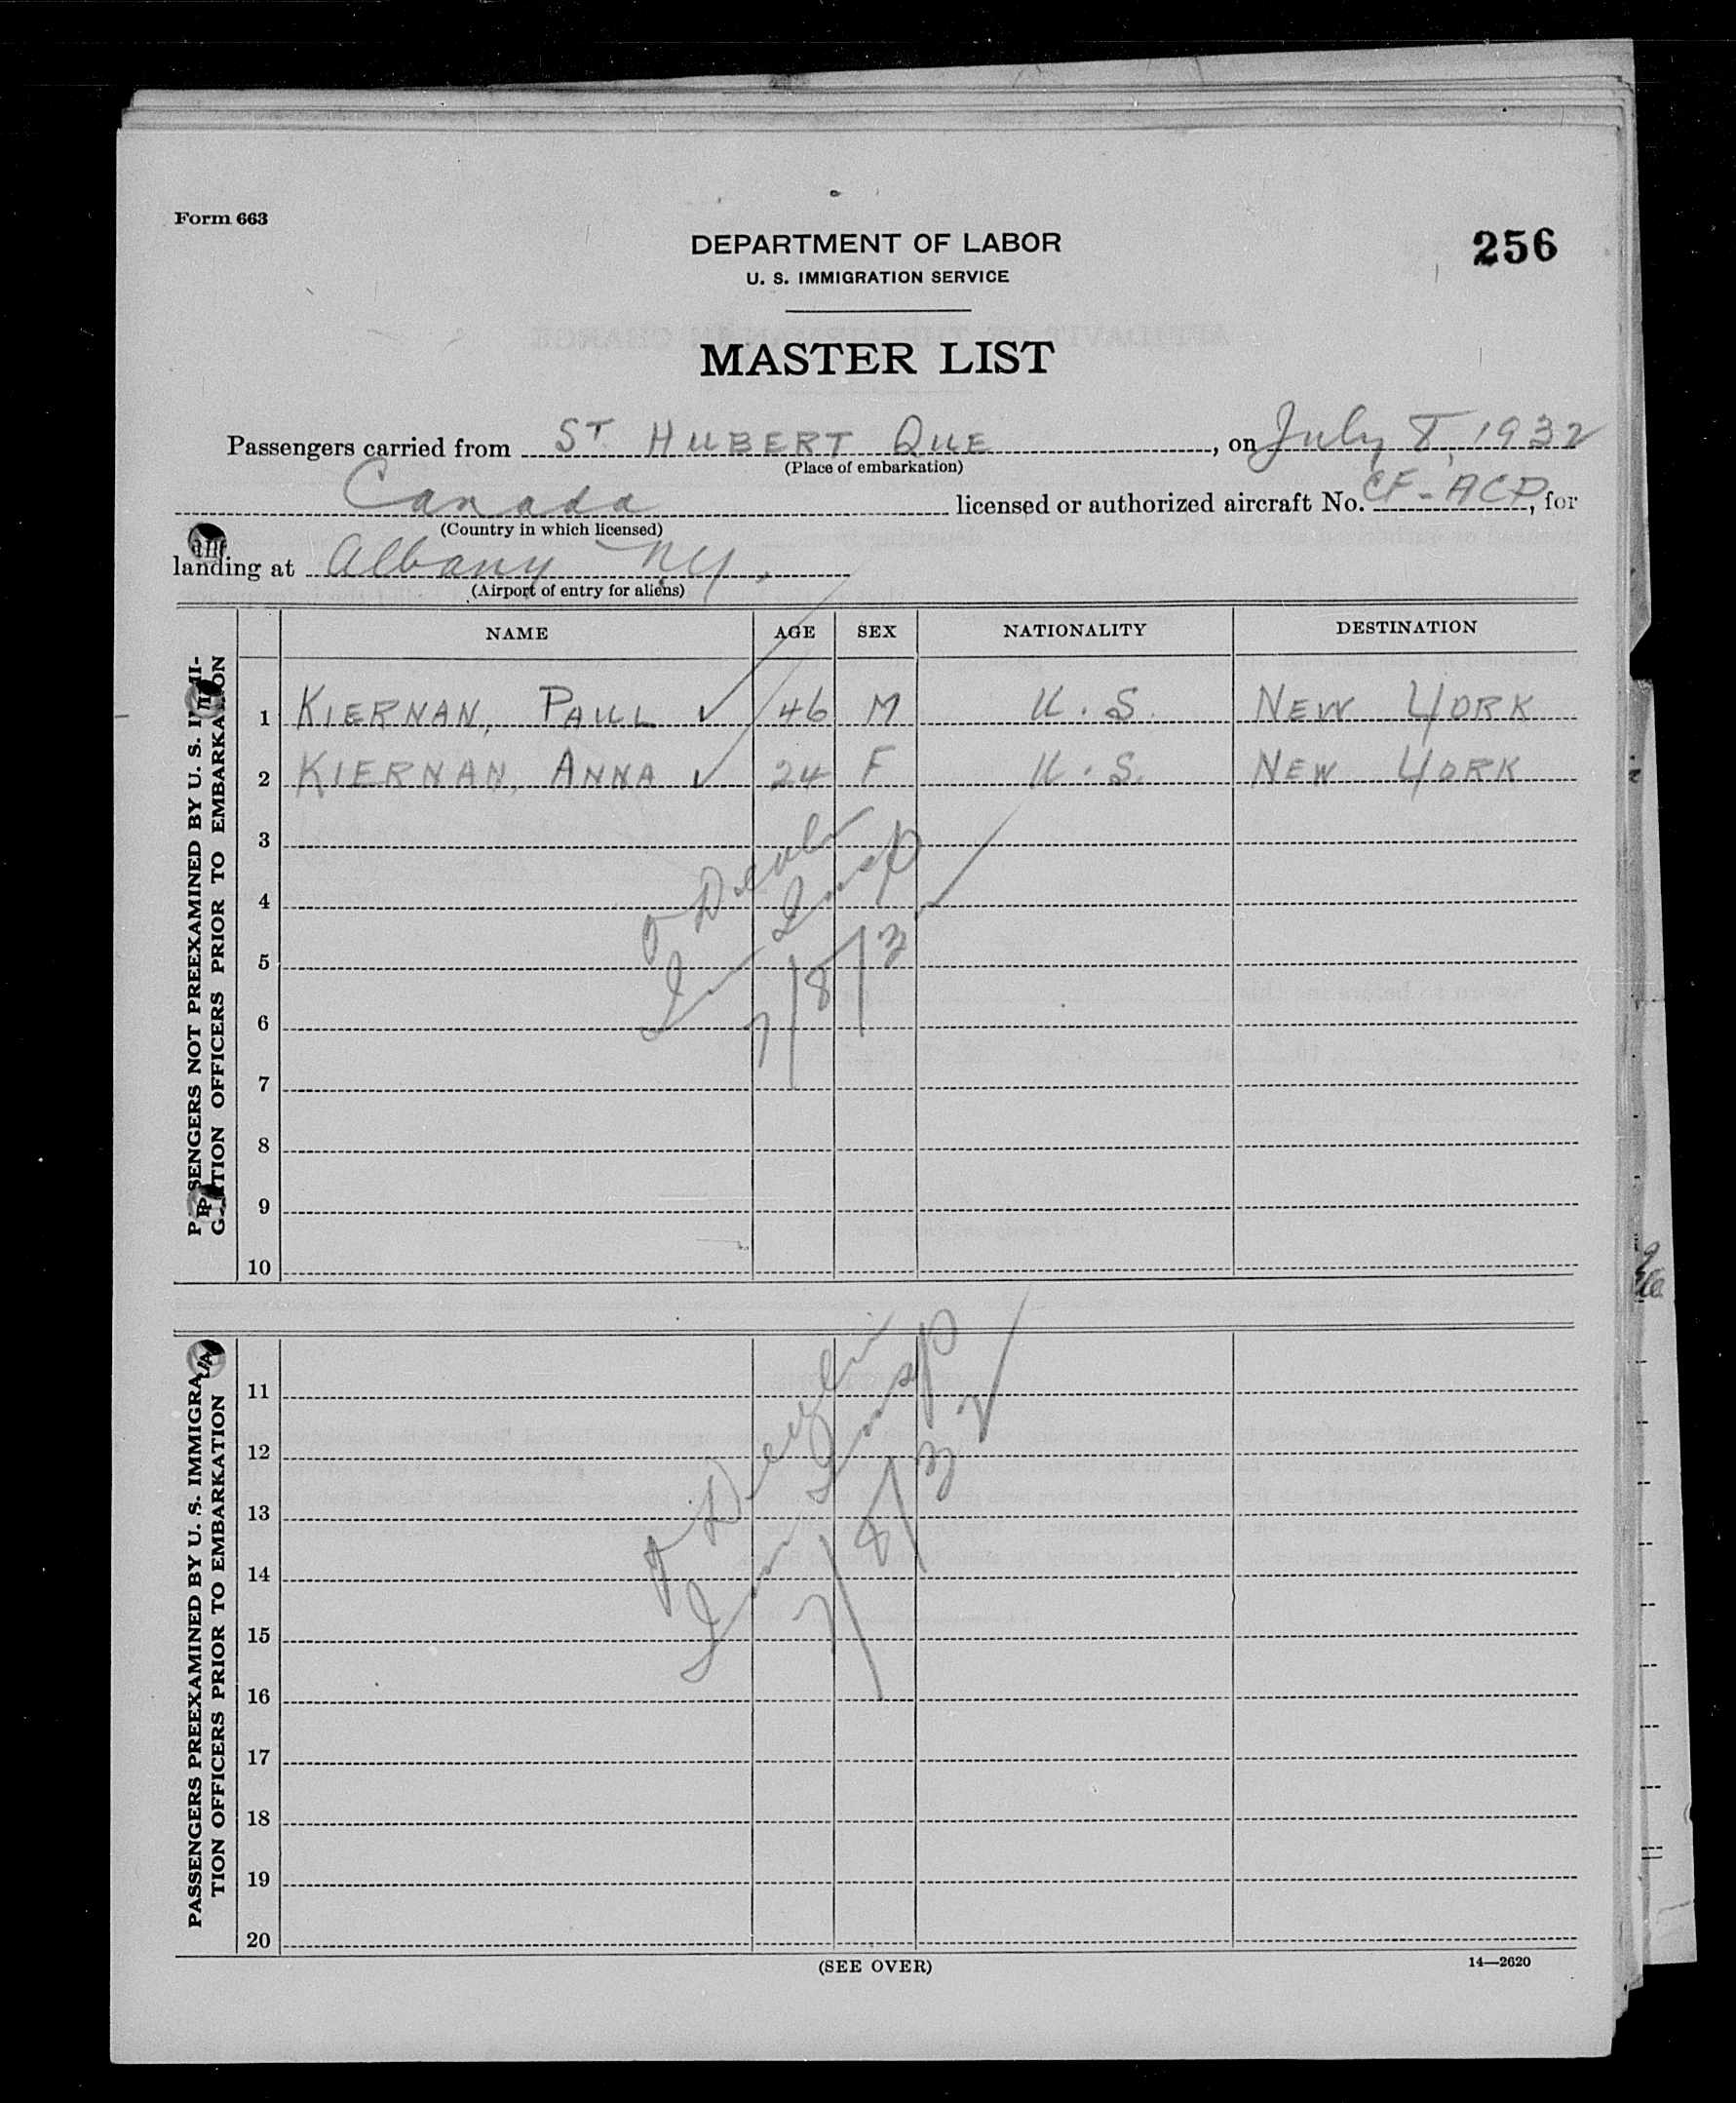 Form 663
DEPARTMENT OF LABOR
U. S. IMMIGRATION SERVICE
256
MASTER LIST
Passengers carried from ST HUBERT QUE, on July 8, 1932
(Place of embarkation)
Canada licensed or authorized aircraft No. CF-ACP, for
(Country in which licensed)
landing at Albany NY.
(Airport of entry for aliens)
NAME AGE SEX NATIONALITY DESTINATION
PASSENGERS NOT PREEXAMINED BY U. S. IMMI-
GRATION OFFICERS PRIOR TO EMBARKATION
1 KIERNAN, PAUL ✓ 46 M U.S. NEW YORK
2 KIERNAN, ANNA ✓ 24 F U.S. NEW YORK
3
4
5
6
7
8
9
10
Insp
7/8/32
PASSENGERS PREEXAMINED BY U. S. IMMIGRA-
TION OFFICERS PRIOR TO EMBARKATION
11
12
13
14
15
16
17
18
19
20
Insp
7/8/32
(SEE OVER)
14—2620